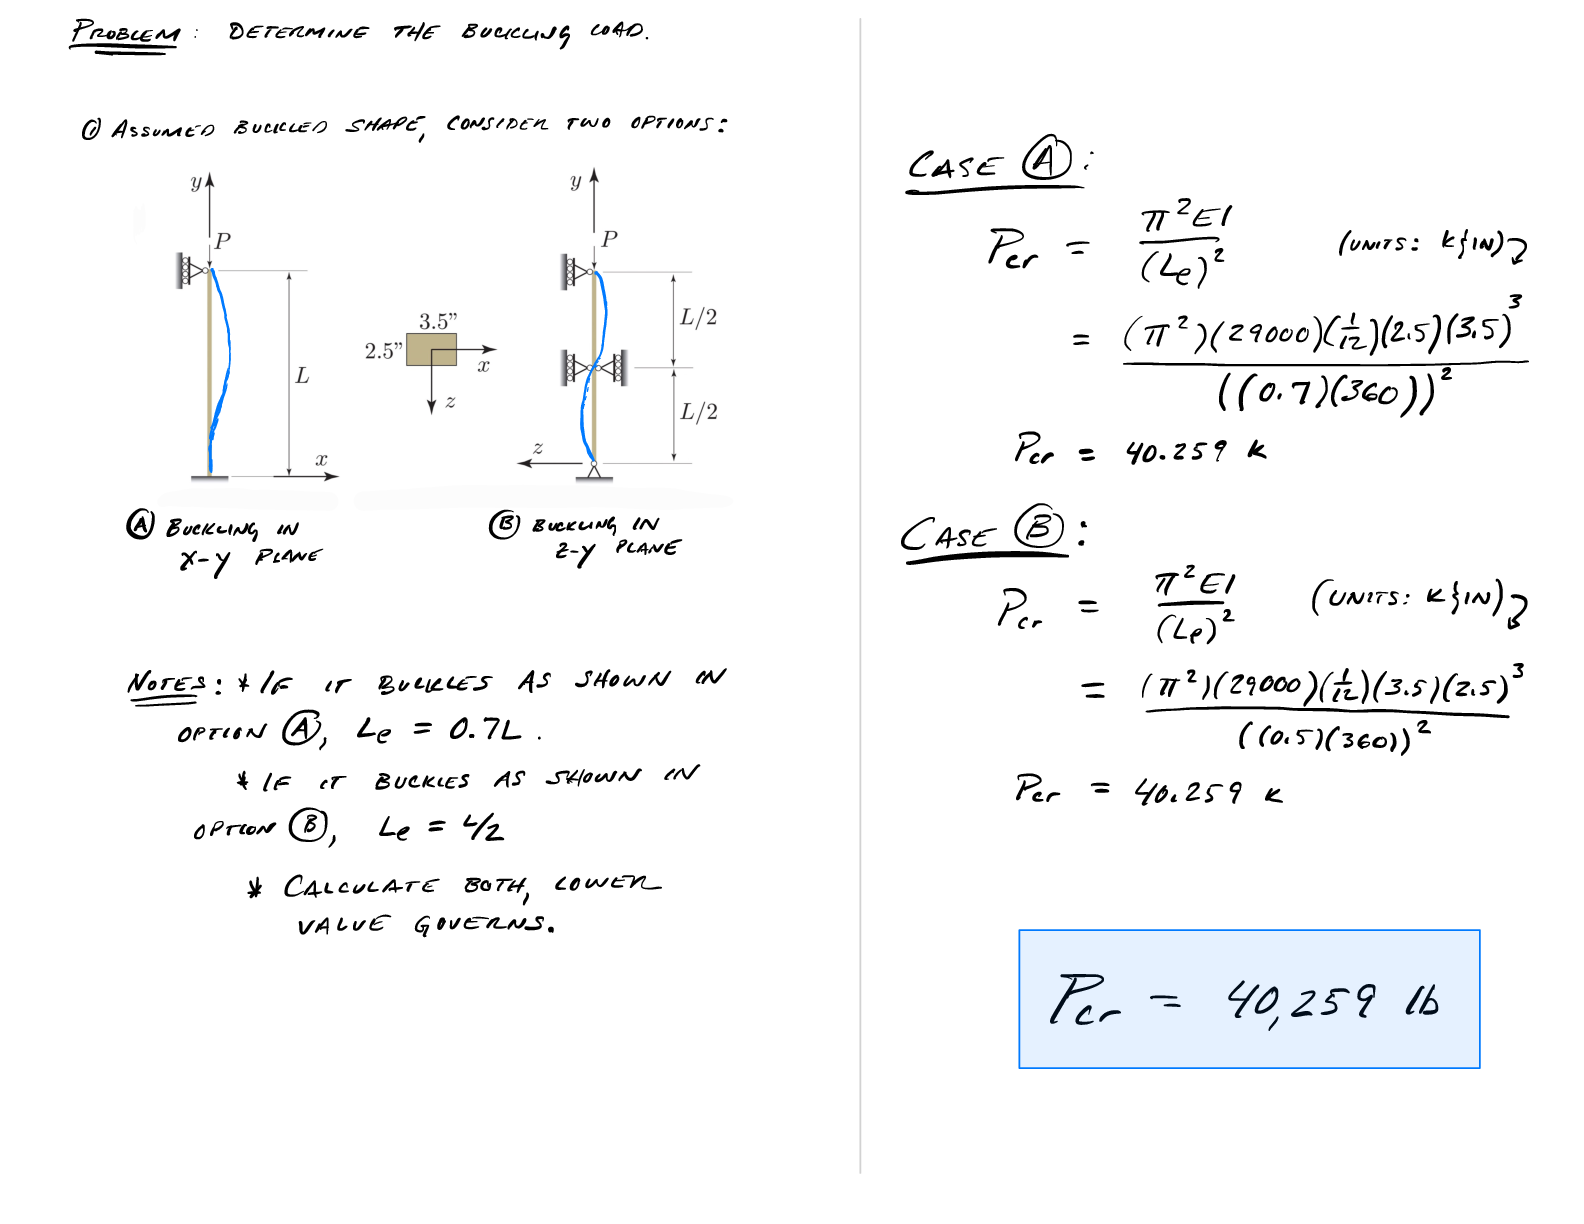 PROBLEM: DETERMINE THE BUCKLING LOAD.
① ASSUMED BUCKLED SHAPE, CONSIDER TWO OPTIONS:
y
P
L
x
3.5”
2.5”
x
z
y
P
L/2
L/2
z
Ⓐ BUCKLING IN
X-Y PLANE
Ⓑ BUCKLING IN
Z-Y PLANE
NOTES: * IF IT BUCKLES AS SHOWN IN
OPTION Ⓐ, Le = 0.7L.
* IF IT BUCKLES AS SHOWN IN
OPTION Ⓑ, Le = L/2
* CALCULATE BOTH, LOWER
VALUE GOVERNS.
CASE Ⓐ:
Pcr = π²EI / (Le)² (UNITS: K & IN)
= (π²)(29000)(1/12)(2.5)(3.5)³ / ((0.7)(360))²
Pcr = 40.259 K
CASE Ⓑ:
Pcr = π²EI / (Le)² (UNITS: K & IN)
= (π²)(29000)(1/12)(3.5)(2.5)³ / ((0.5)(360))²
Pcr = 40.259 K
Pcr = 40,259 lb